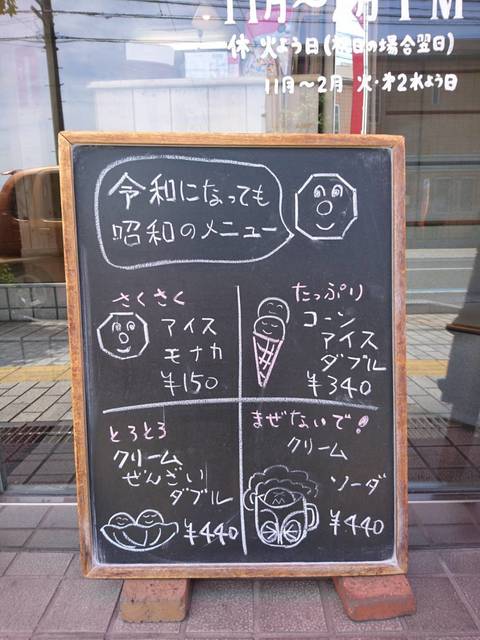 11月〜2月 PM
休 火よう日(祝日の場合翌日)
11月〜2月 火・第2水よう日
令和になっても
昭和のメニュー
さくさく
アイス
モナカ
¥150
たっぷり
コーン
アイス
ダブル
¥340
とろとろ
クリーム
ぜんざい
ダブル
¥440
まぜないで!
クリーム
ソーダ
¥440